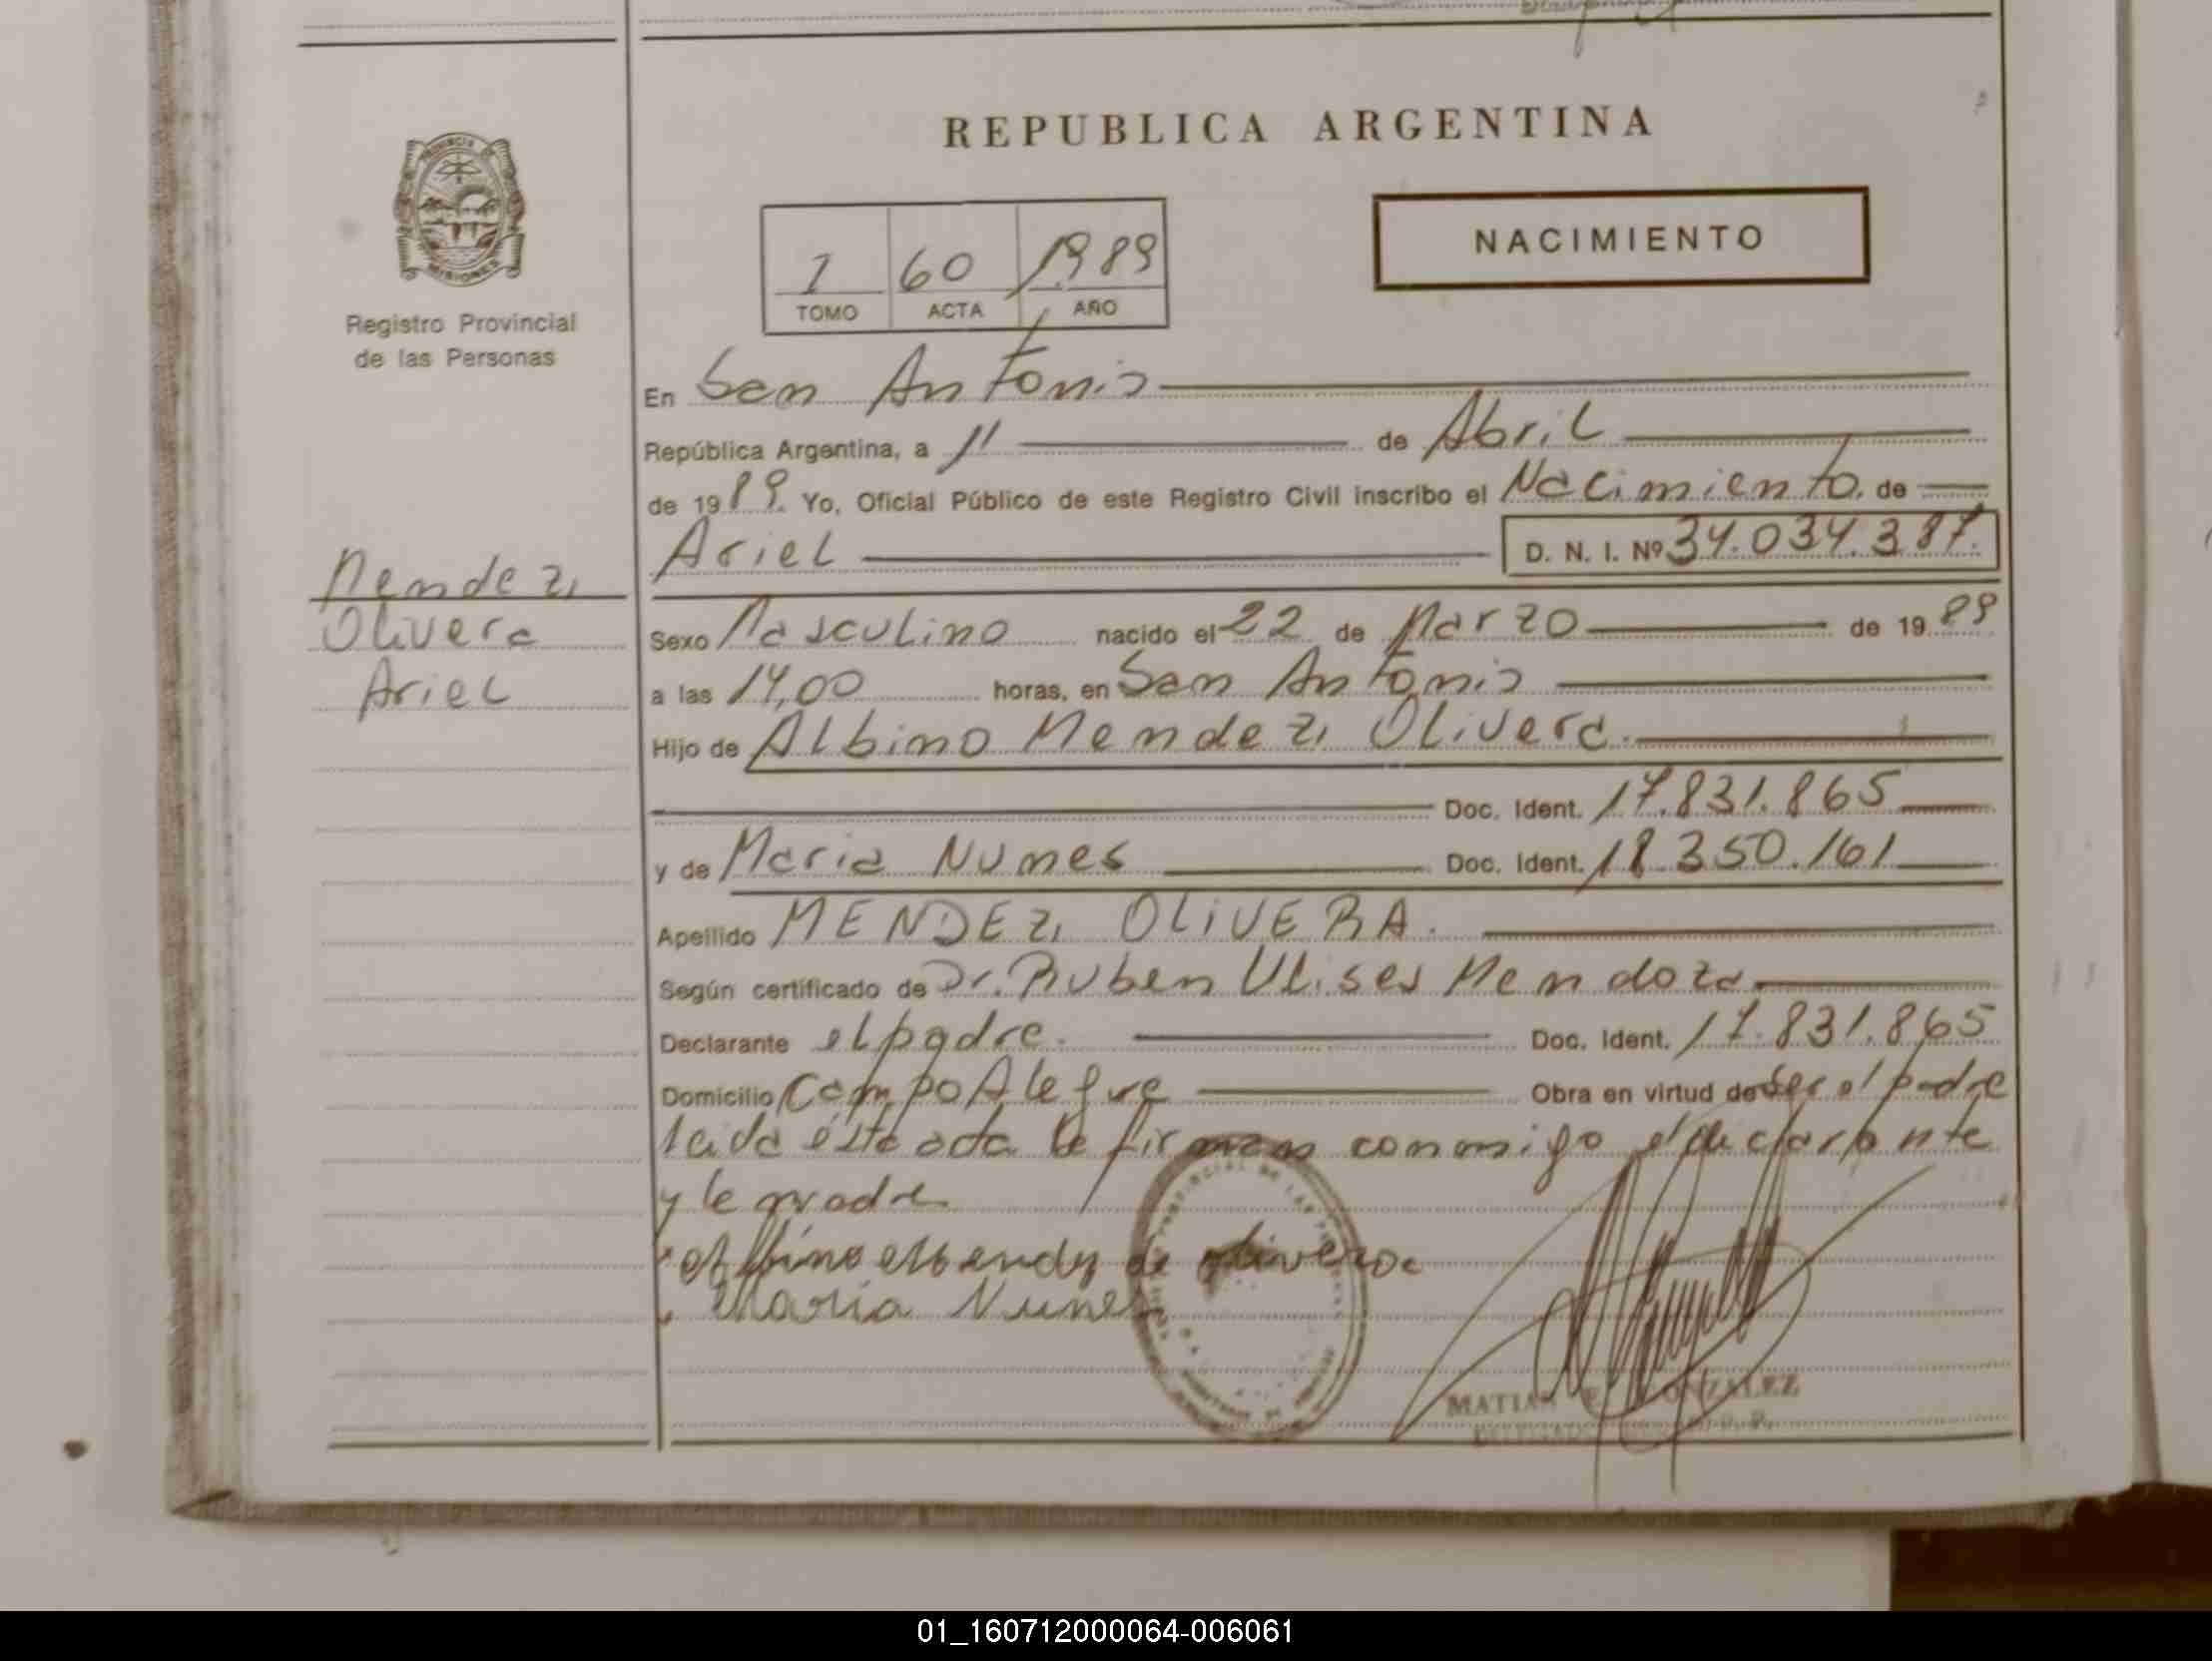 REPUBLICA ARGENTINA
PROVINCIA DE
MISIONES
Registro Provincial
de las Personas
NACIMIENTO
1 60 1989
TOMO ACTA AÑO
En San Antonio
República Argentina, a 11 de Abril
de 1989. Yo, Oficial Público de este Registro Civil inscribo el Nacimiento. de
Ariel D. N. I. Nº 34.034.387.
Mendez,
Olivera
Ariel
Sexo Masculino nacido el 22 de Marzo de 1989
a las 14,00 horas, en San Antonio
Hijo de Albino Mendez, Olivera.
Doc. Ident. 17.831.865
y de Maria Nunes Doc. Ident. 18.350.161
Apellido MENDEZ, OLIVERA.
Según certificado de Dr. Ruben Ulises Mendoza
Declarante el padre. Doc. Ident. 17.831.865
Domicilio Campo Alegre Obra en virtud de ser el padre
leida ésta acta la firman conmigo el declarante
y la madre
Albino Mendez de olivera
Maria Nunes
MATIAS E. GONZALEZ
01_160712000064-006061